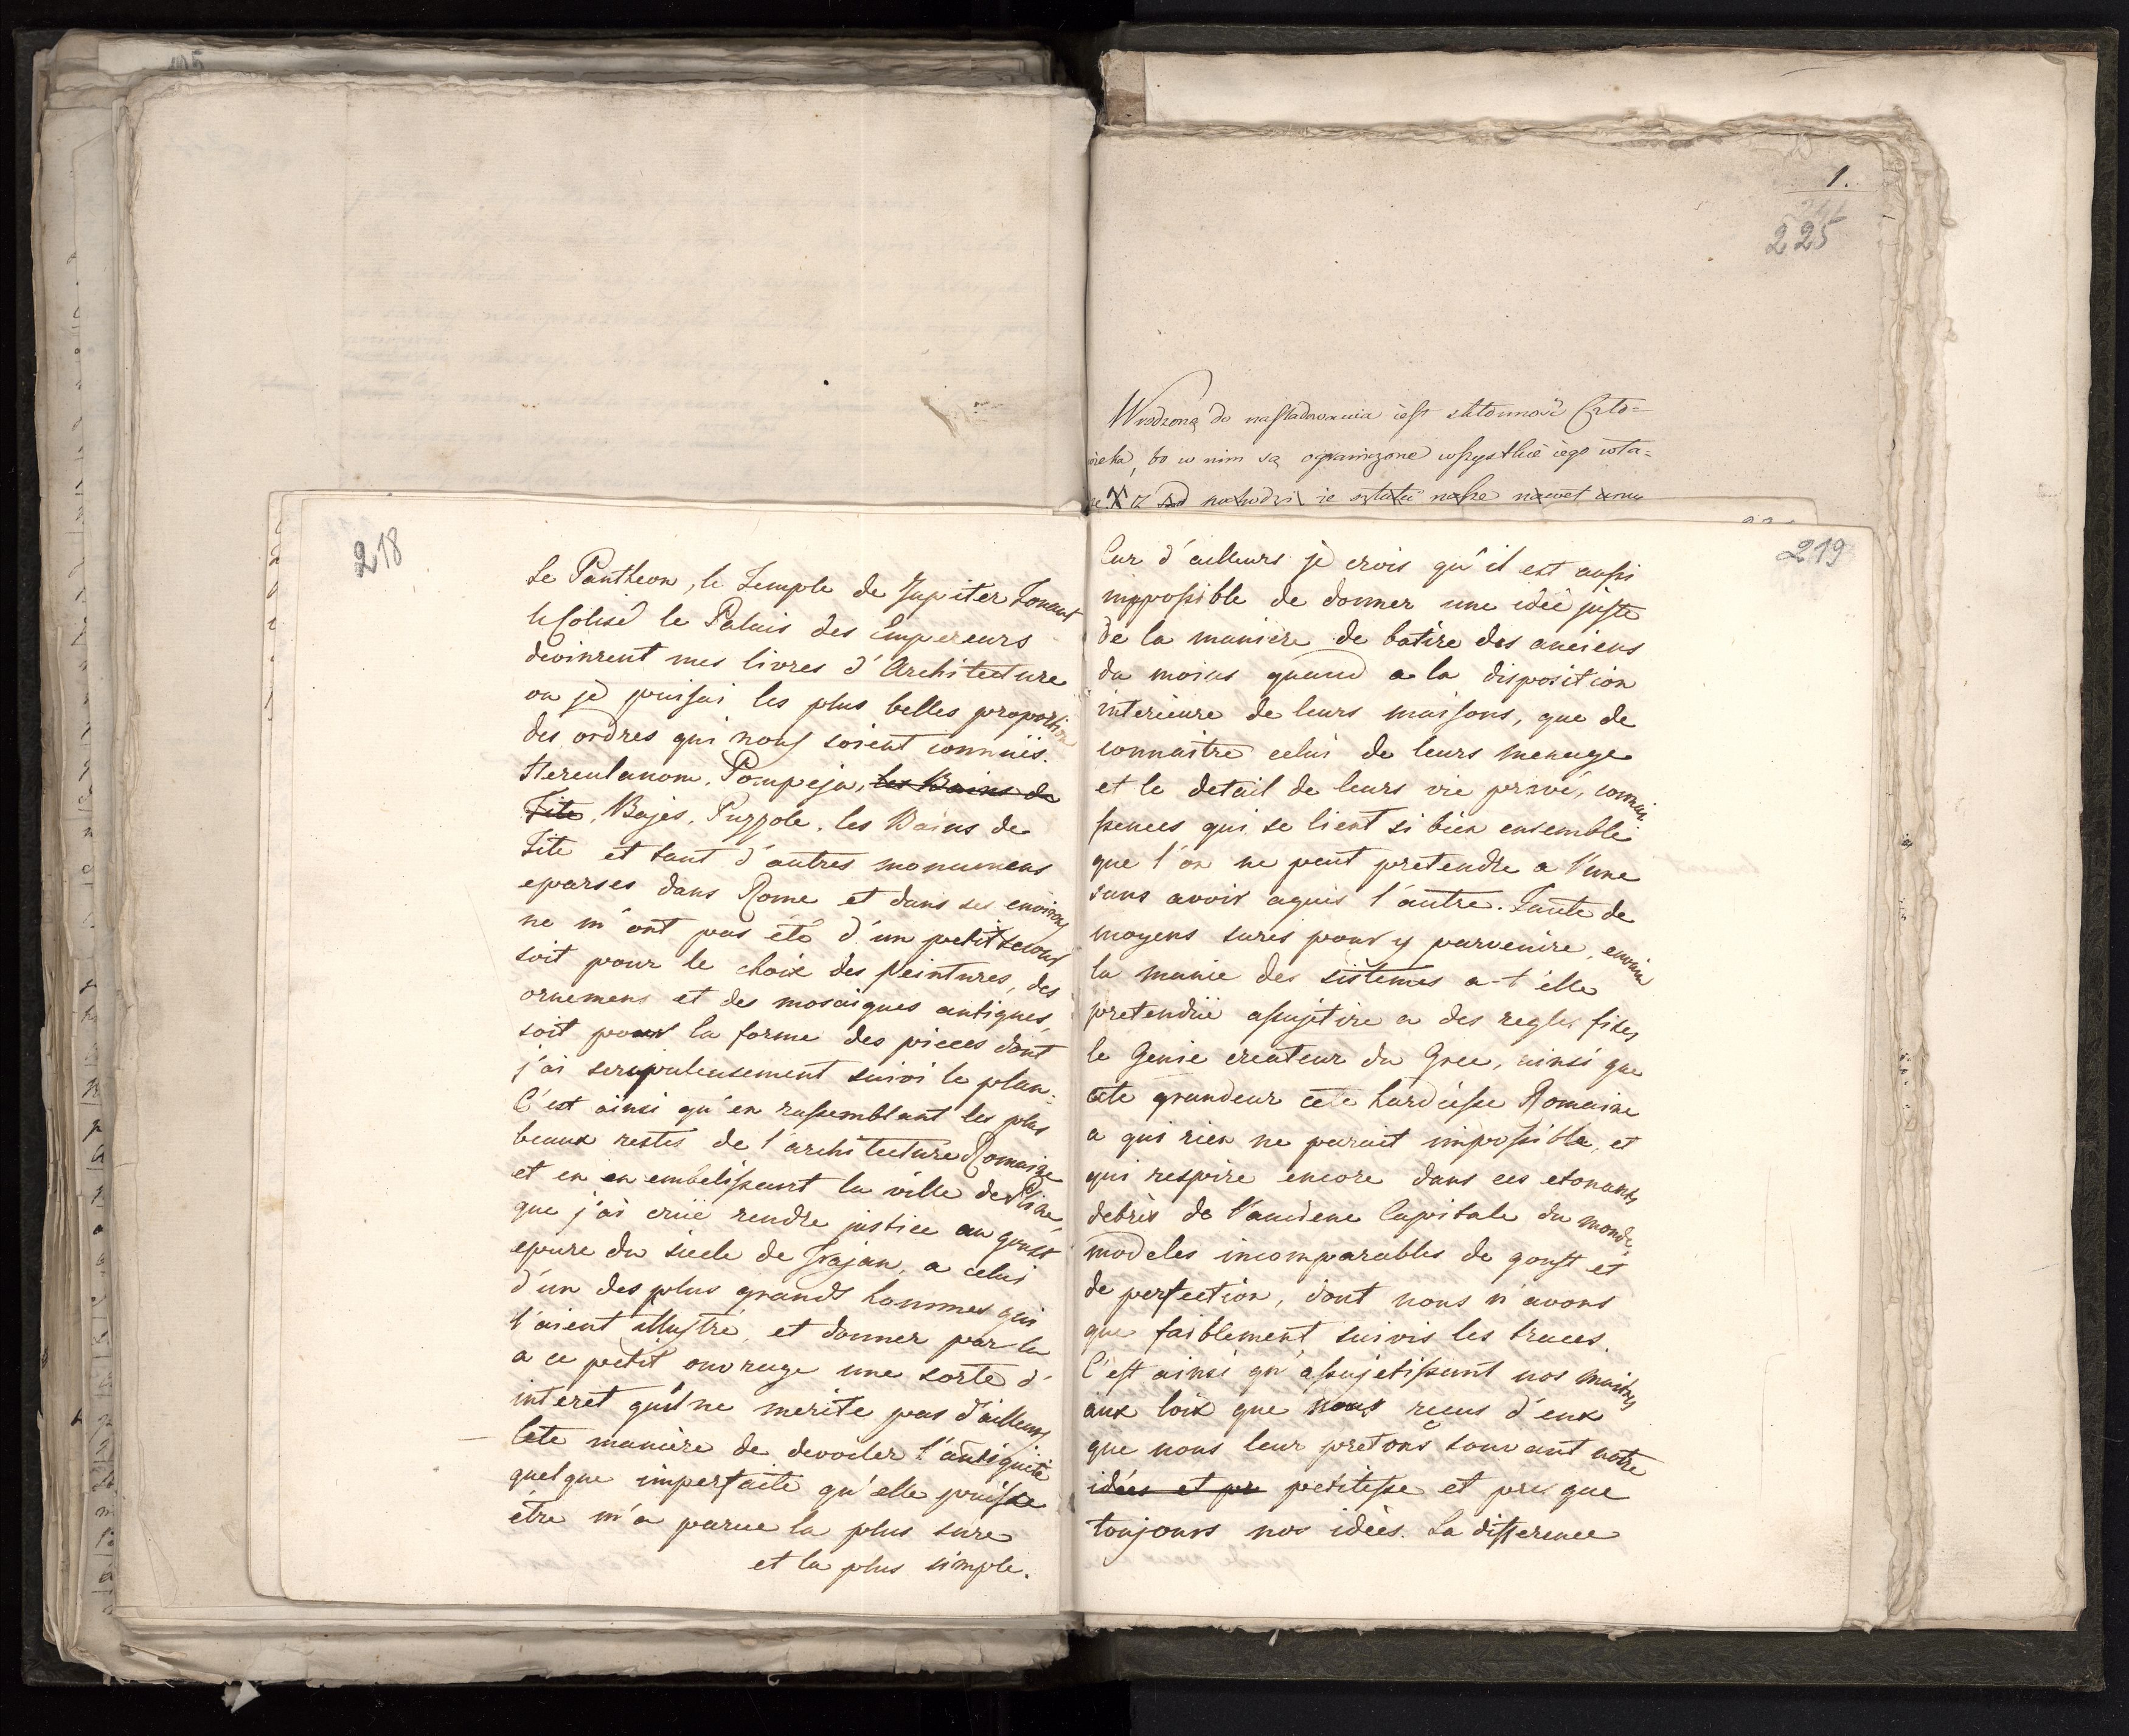 218
Le Pantheon, le Temple de Jupiter Tonant
le Colisé le Palais des Empereurs
devinrent mes livres d'Architecture
ou je puisai les plus belles proportion
des ordres qui nous soient connuis.
Herculanom, Pompeja, les Bains de
Tite, Bajes, Puzzole, les Bains de
Tite et tant d'autres monumens
eparses dans Rome et dans ses environs
ne m'ont pas été d'un petit secours
soit pour le choix des peintures, des
ornemens et des mosaiques antiques,
soit pour la forme des pieces dont
j'ai scrupuleusement suivi le plan.
C'est ainsi qu'en rassemblant les plus
beaux restes de l'architecture Romaine
et en en embelissant la ville de Pline,
que j'ai crüe rendre justice au goust
epure du siecle de Trajan, a celui
d'un des plus grands hommes qui
l'aient illustré, et donner par la
a ce petit ouvrage une sorte d'
interet qu'il ne merite pas d'ailleurs
Cete manière de devoiler l'antiquité
quelque imperfaite qu'elle puisse
être m'a parue la plus sure
et la plus simple.
1.
225
Wrodzoną do nasladowania iest skłonność Czło=
wieka, bo w nim są ograniczone wszystkie iego wła=
219
Car d'ailleurs je crois qu'il est aussi
impossible de donner une idée juste
de la maniere de batire des anciens
du moins quand a la disposition
interieure de leurs maisons, que de
connaitre celui de leurs menage
et le detail de leurs vie privé, connais
sences qui se lient si bien ensemble
que l'on ne peut pretendre a l'une
sans avoir aquis l'autre. Faute de
moyens sures pour y parvenire, envain
la manie des sistemes a-t'elle
pretendüe assujetire a des regles fixes
le Genie createur du Grec, ainsi que
cete grandeur cete hardiesse Romaine
a qui rien ne parait impossible, et
qui respire encore dans ces etonants
debris de l'anciene Capitale du monde,
modeles incomparables de goust et
de perfection, dont nous n'avons
que faiblement suivis les traces.
C'est ainsi qu'assujetissant nos maitres
aux loix que nous reçus d'eux
que nous leur pretons souvant notre
idées et pr petitesse et presque
toujours nos idées. La difference